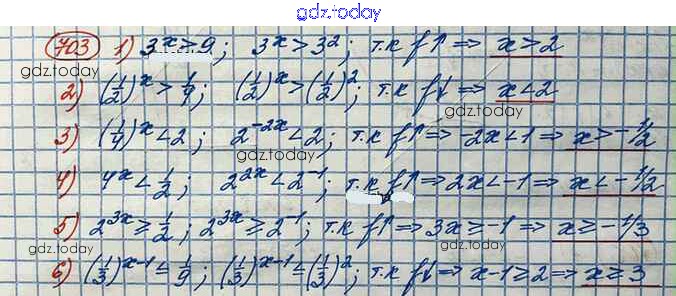 gdz.today
703 1) 3^x > 9; 3^x > 3^2; т.к f↑ ⇒ x > 2
gdz.today
2) (1/2)^x > 1/4; (1/2)^x > (1/2)^2; т.к f↓ ⇒ x < 2
gdz.today
3) (1/4)^x < 2; 2^-2x < 2; т.к f↑ ⇒ -2x < 1 ⇒ x > -1/2
gdz.today
4) 4^x < 1/2; 2^2x < 2^-1; т.к f↑ ⇒ 2x < -1 ⇒ x < -1/2
5) 2^3x ≥ 1/2; 2^3x ≥ 2^-1; т.к f↑ ⇒ 3x ≥ -1 ⇒ x ≥ -1/3
gdz.today gdz.today
6) (1/3)^x-1 ≤ 1/9; (1/3)^x-1 ≤ (1/3)^2; т.к f↓ ⇒ x-1 ≥ 2 ⇒ x ≥ 3